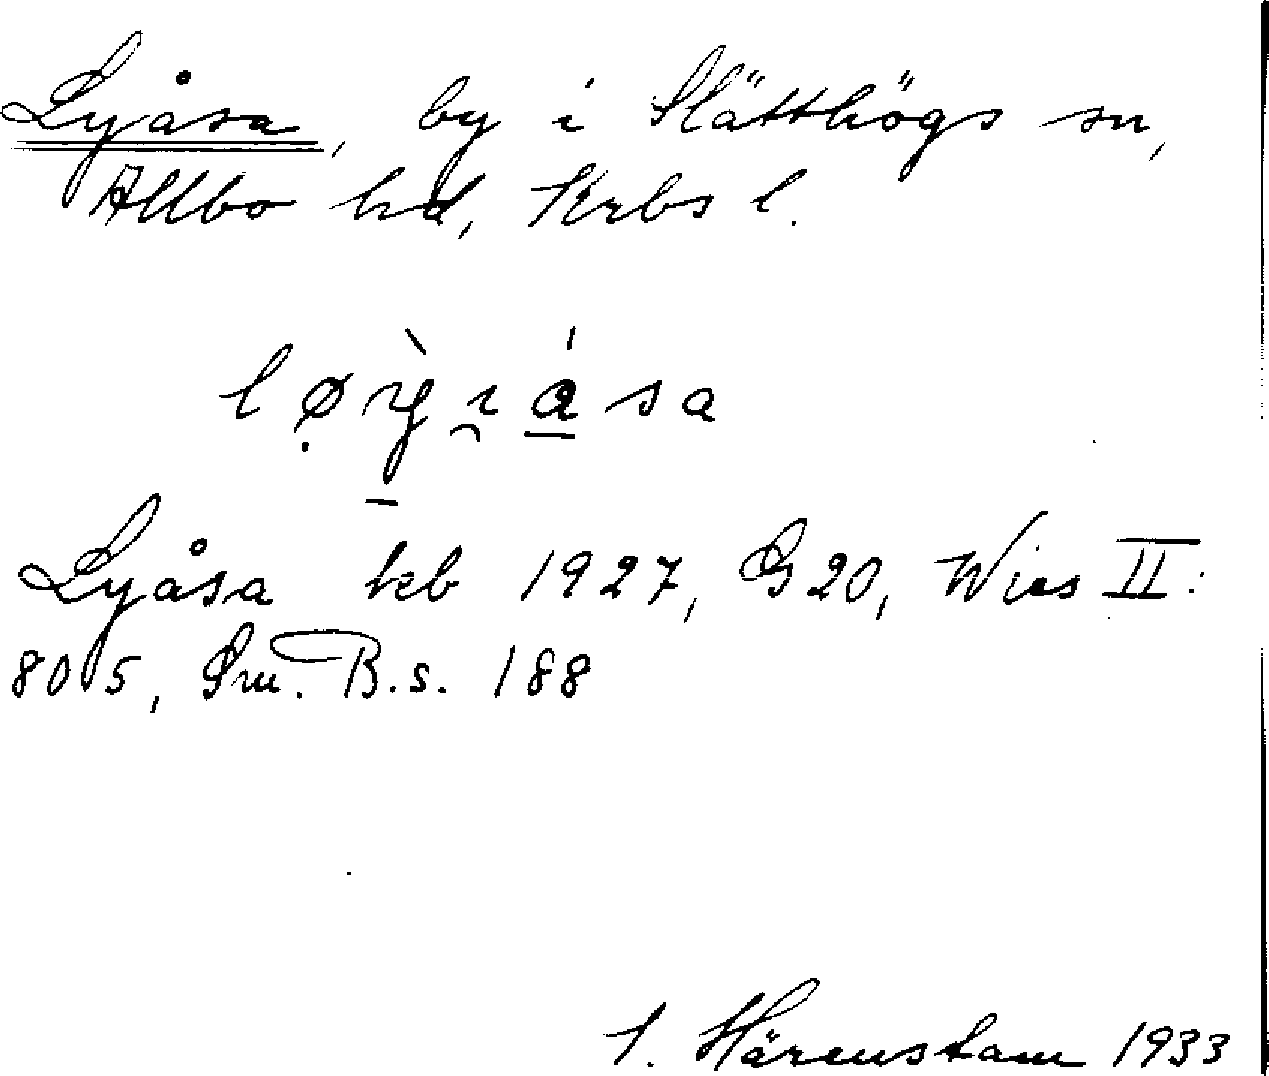 Lyåsa, by i Slätthögs sn,
Allbo hd, Krbs l.
Lyåsa keb 1927, G20, Wies II:
805, Sm. B. s. 188
1. Härenstam 1933